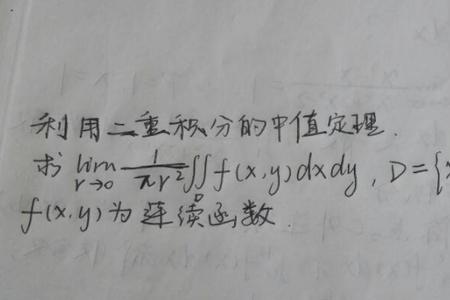 利用二重积分的中值定理.
求 lim r→0 1/πr² ∬_D f(x,y)dxdy, D={
f(x,y)为连续函数